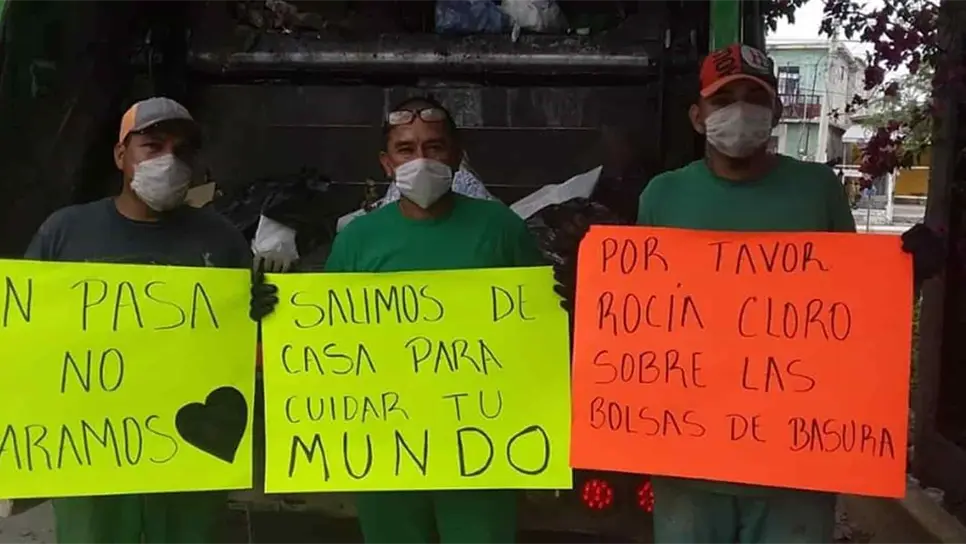 N PASA
NO
ARAMOS
SALIMOS DE
CASA PARA
CUIDAR TU
MUNDO
POR TAVOR
ROCÍA CLORO
SOBRE LAS
BOLSAS DE BASURA